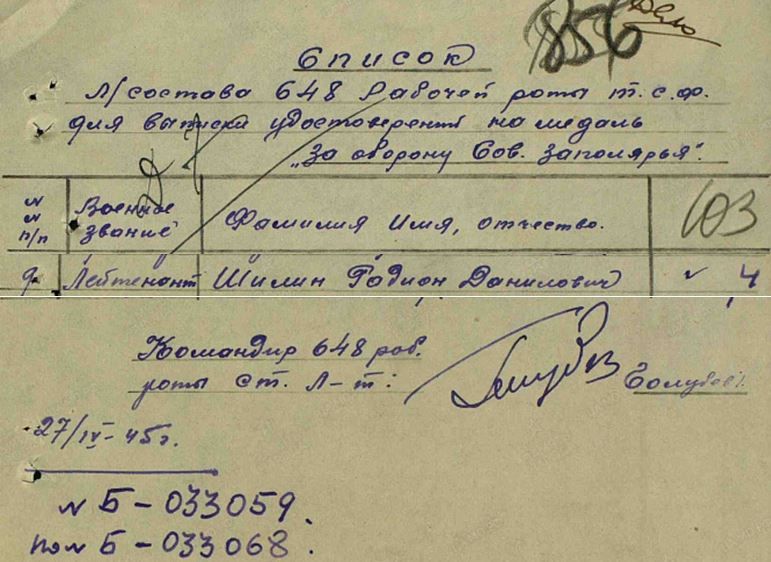 856 Дело
Список
Л/состава 648 Рабочей роты т.с.ф.
для выписки удостоверений на медаль
"За оборону Сов. Заполярья".
N N п/п Военное звание Фамилия Имя, отчество. 103
9. Лейтенант Шилин Родион Данилович " 4
Командир 648 раб.
роты ст. Л-т: Голубев
27/IV-45г.
N Б-033059
по N Б-033068.